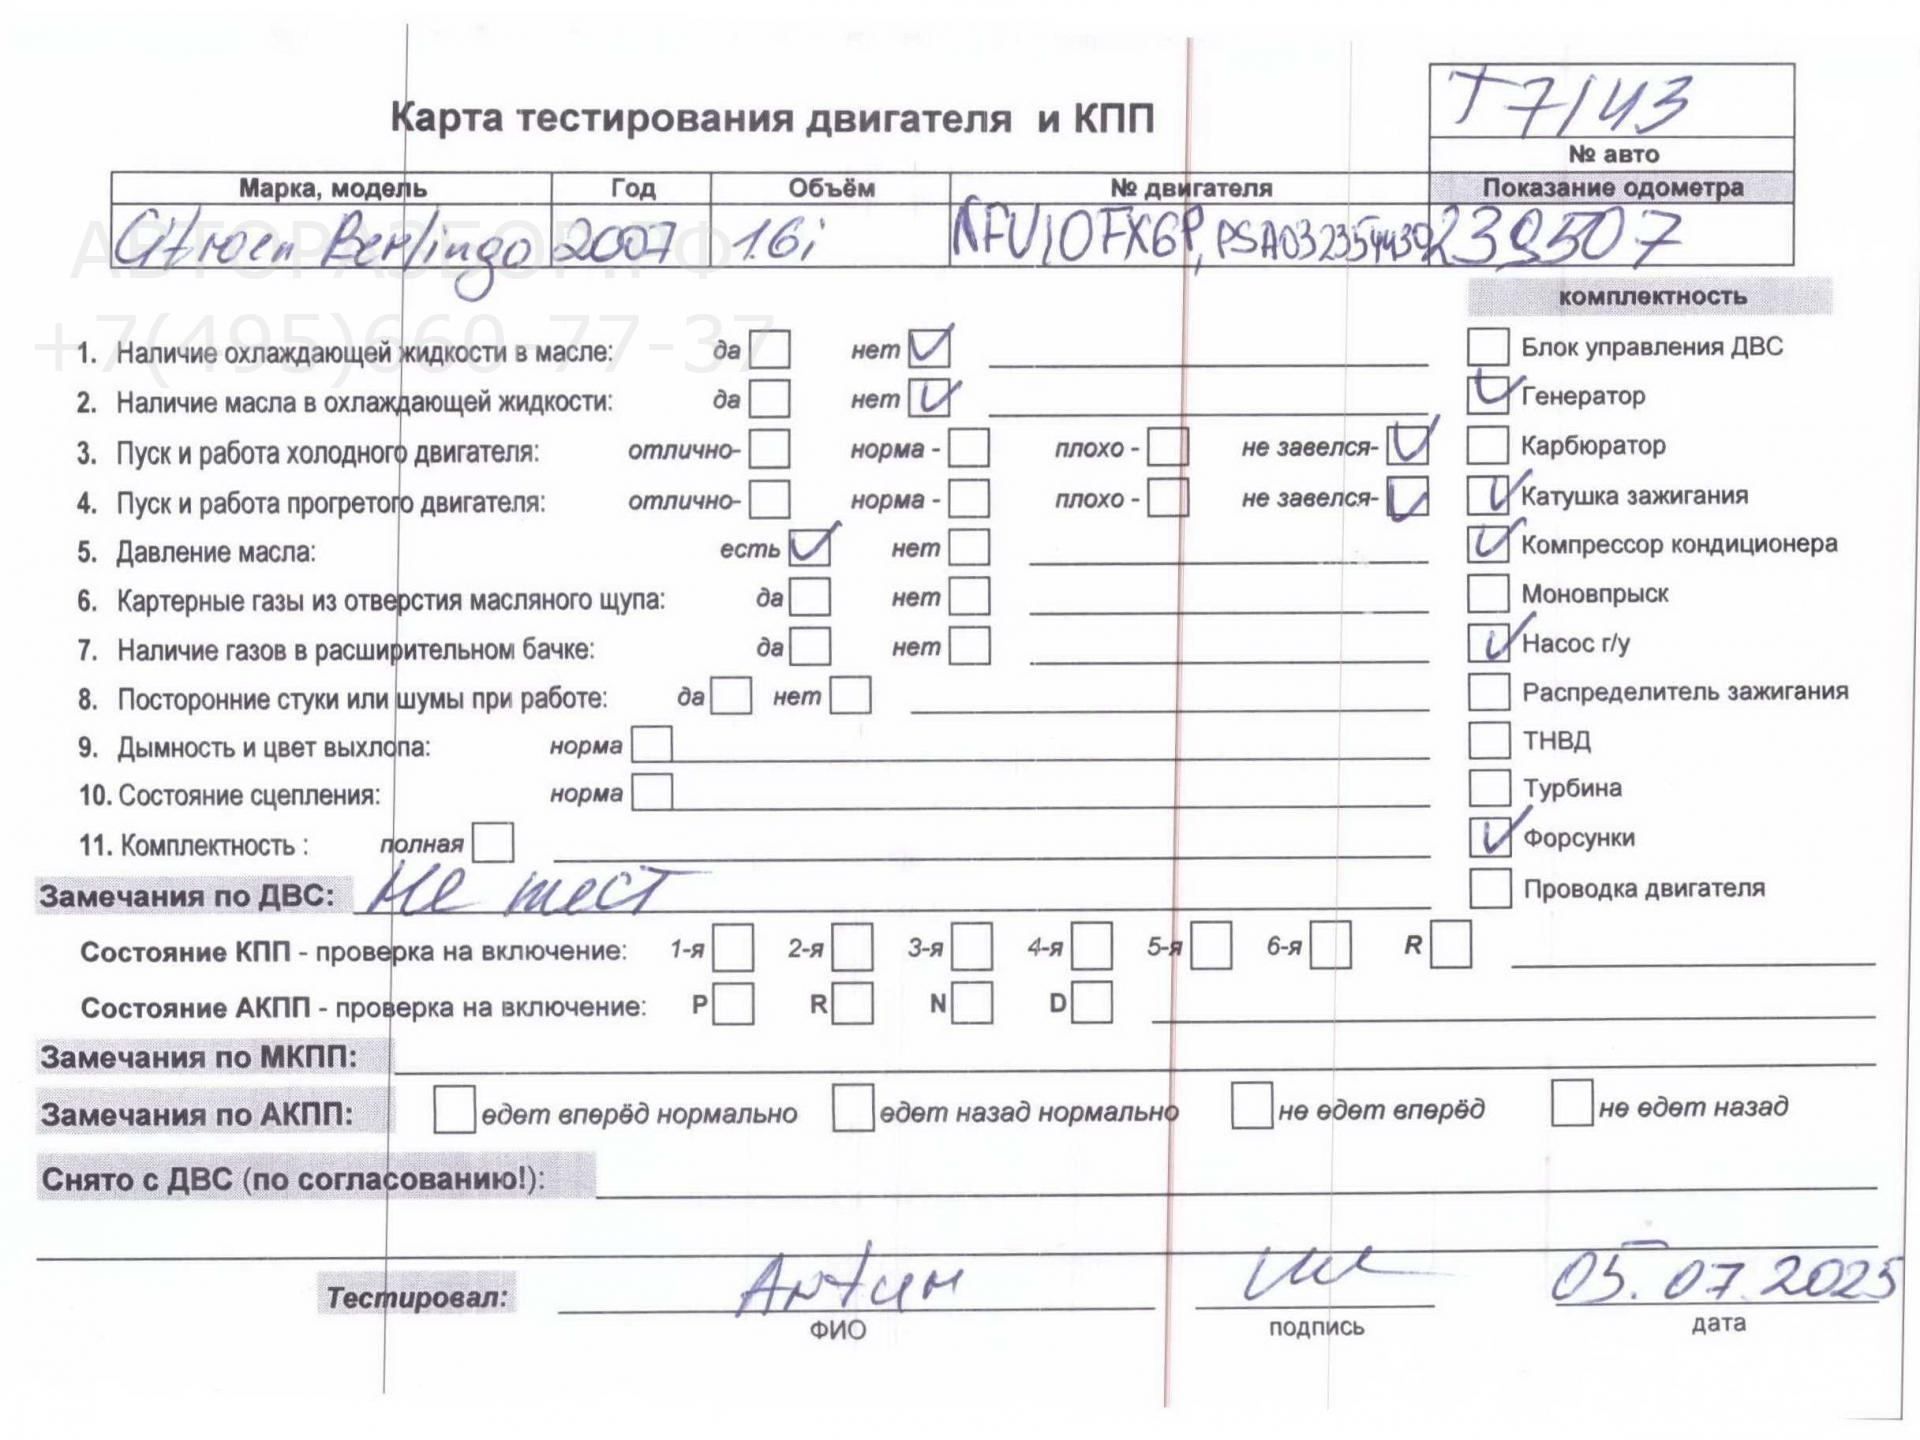 T7/43
Карта тестирования двигателя и КПП
№ авто
Марка, модель Год Объём № двигателя Показание одометра
Citroen Berlingo 2007 1.6i NFU10FX6P, PSA032354430 239507
АВТОРАЗБОР.РФ
+7(495)660-77-37
комплектность
1. Наличие охлаждающей жидкости в масле: да нет Блок управления ДВС
2. Наличие масла в охлаждающей жидкости: да нет Генератор
3. Пуск и работа холодного двигателя: отлично- норма - плохо - не завелся- Карбюратор
4. Пуск и работа прогретого двигателя: отлично- норма - плохо - не завелся- Катушка зажигания
5. Давление масла: есть нет Компрессор кондиционера
6. Картерные газы из отверстия масляного щупа: да нет Моновпрыск
7. Наличие газов в расширительном бачке: да нет Насос г/у
8. Посторонние стуки или шумы при работе: да нет Распределитель зажигания
9. Дымность и цвет выхлопа: норма ТНВД
10. Состояние сцепления: норма Турбина
11. Комплектность : полная Форсунки
Замечания по ДВС: Не тест Проводка двигателя
Состояние КПП - проверка на включение: 1-я 2-я 3-я 4-я 5-я 6-я R
Состояние АКПП - проверка на включение: P R N D
Замечания по МКПП:
Замечания по АКПП: едет вперёд нормально едет назад нормально не едет вперёд не едет назад
Снято с ДВС (по согласованию!):
Тестировал: 05.07.2025
ФИО подпись дата